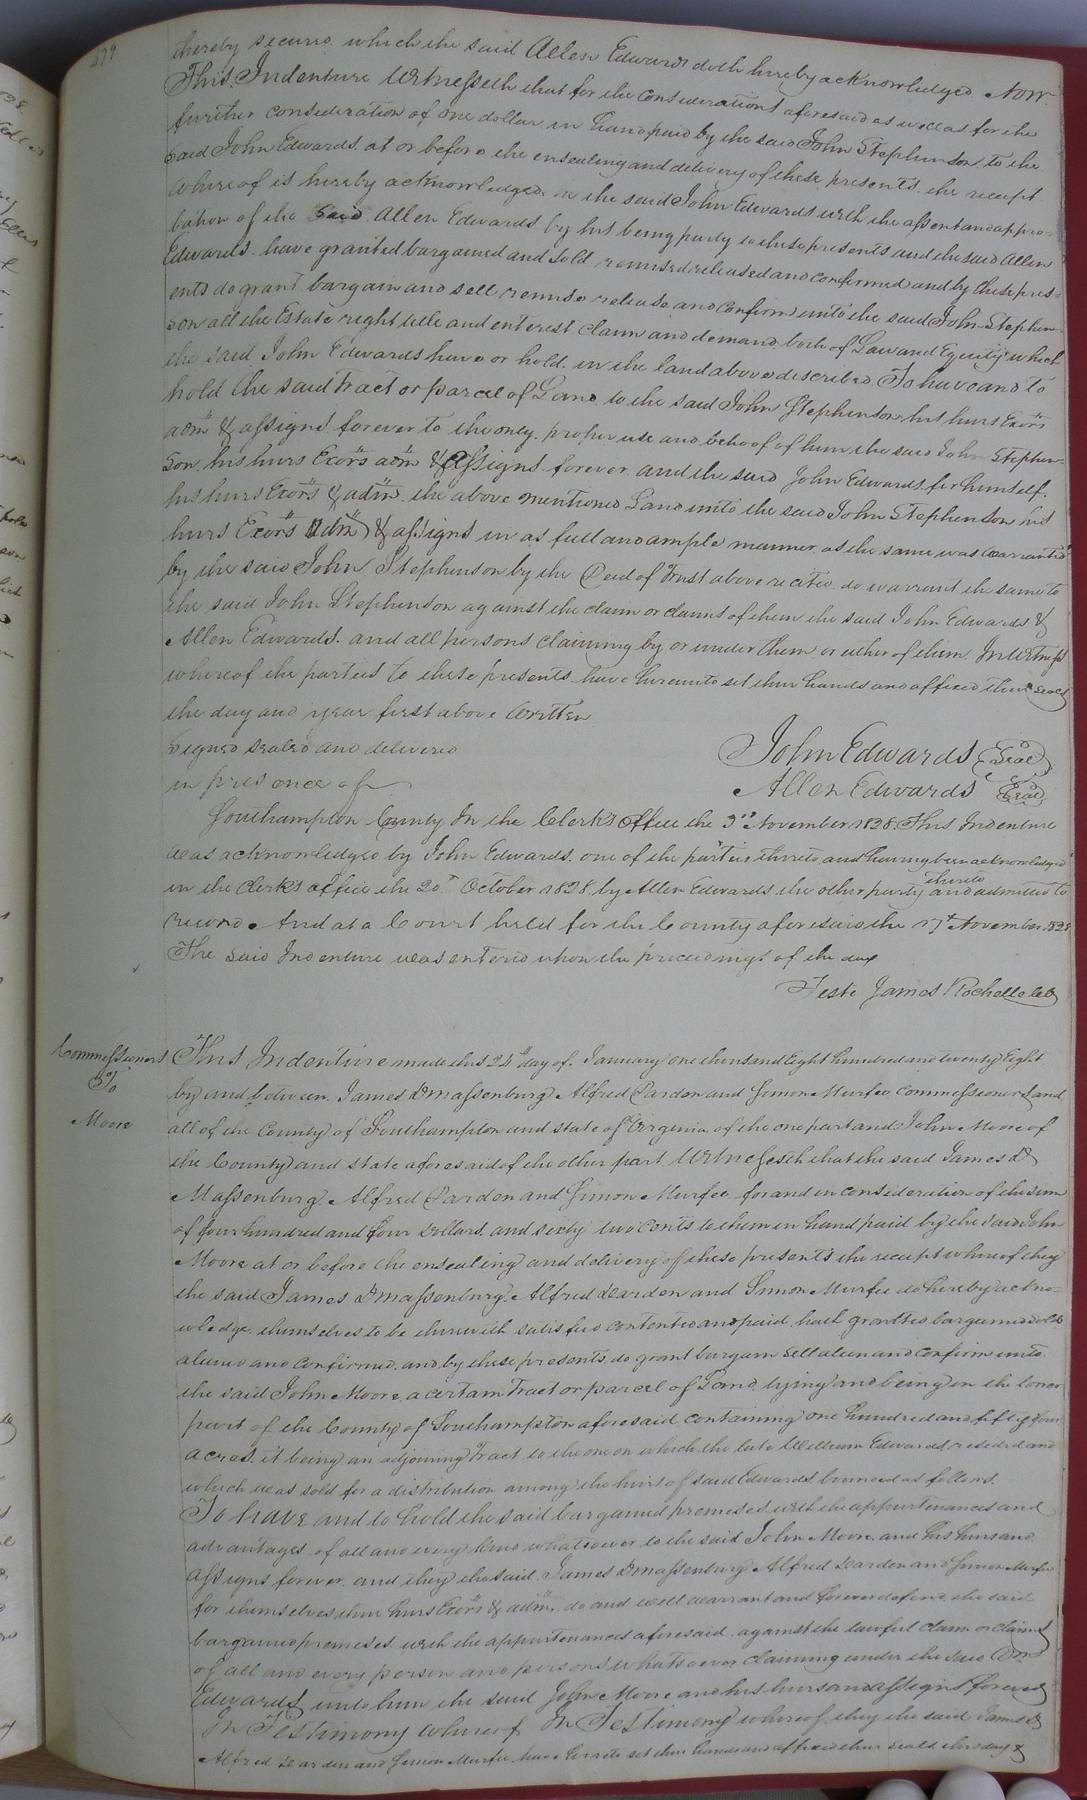 379
thereby secured which the said Allen Edwards doth hereby acknowledged Now
This Indenture Witnesseth that for the consideration aforesaid as well as for the
further consideration of one dollar in hand paid by the said John Stephenson to the
said John Edwards at or before the ensealing and delivery of these presents the receipt
whereof is hereby acknowledged the said John Edwards with the assent and appro-
bation of the said Allen Edwards by his being party to these presents and the said Allen
Edwards have granted bargained and sold remised released and confirmed and by these pres-
ents do grant bargain and sell remise release and confirm unto the said John Stephen-
son all the Estate right title and interest claim and demand both of Law and Equity which
the said John Edwards have or hold in the land above described To have and to
hold the said Tract or parcel of Land to the said John Stephenson his hurs Exors
adm & assigns forever to the only proper use and behoof of him the said John Stephen-
son his hurs Exors adm & assigns forever and the said John Edwards for himself
his hurs Exors & adm the above mentioned Land unto the said John Stephenson his
hurs Exors adm & assigns in as full and ample manner as the same was warranted
by the said John Stephenson by the Deed of Trust above recited do warrant the same to
the said John Stephenson against the claim or claims of them the said John Edwards &
Allen Edwards and all persons claiming by or under them or either of them In Witness
whereof the parties to these presents have hereunto set their hands and affixed their seals
the day and year first above written
Signed sealed and delivered
in presence of
John Edwards Seal
Allen Edwards Seal
Southampton County In the Clerks Office the 3rd November 1828 This Indenture
was acknowledged by John Edwards one of the parties thereto and having been acknowledged
in the Clerks office the 20th October 1828 by Allen Edwards the other party thereto and admitted to
record And at a Court held for the County aforesaid the 17th November 1828
The said Indenture was entered upon the proceedings of the day
Teste James Rochelle
Commissioners
To
Moore
This Indenture made this 24th day of January one thousand Eight hundred and twenty Eight
by and between James D Massenburg Alfred Darden and Simon Murfee commissioners and
all of the County of Southampton and state of Virginia of the one part and John Moore of
the County and state aforesaid of the other part Witnesseth that the said James D
Massenburg Alfred Darden and Simon Murfee for and in consideration of the sum
of four hundred and four Dollars and sixty two cents to them in hand paid by the said John
Moore at or before the ensealing and delivery of these presents the receipt whereof they
the said James D Massenburg Alfred Darden and Simon Murfee do hereby ackno-
wledge themselves to be therewith satisfied contented and paid hath granted bargained sold
aliened and confirmed and by these presents do grant bargain sell alien and confirm unto
the said John Moore a certain Tract or parcel of Land lying and being in the lower
part of the County of Southampton aforesaid containing one hundred and fifty four
acres it being an adjoining Tract to the one on which the late William Edwards resided and
which was sold for a distribution among the heirs of said Edwards bounded as follows
To have and to hold the said bargained premises with the appurtenances and
advantages of all and every kind whatsoever to the said John Moore and his hurs and
assigns forever and they the said James D Massenburg Alfred Darden and Simon Murfee
for themselves their hurs Exors & adm do and will warrant and forever defend the said
bargained premises with the appurtenances aforesaid against the lawful claim or claims
of all and every person and persons whatsoever claiming under the said
Edwards unto him the said John Moore and his hurs and assigns forever
In Testimony whereof In Testimony whereof they the said James D
Alfred Darden and Simon Murfee have hereto set their hands and affixed their seals this day &